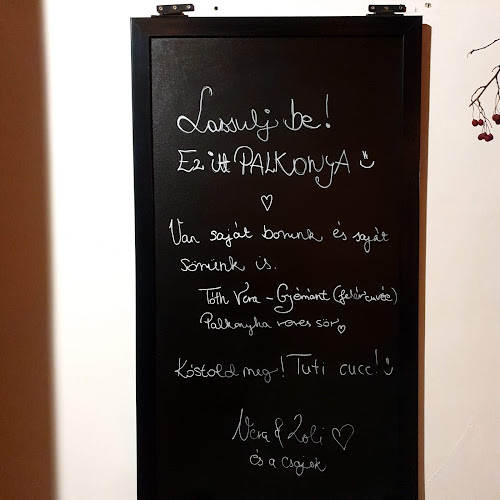 Lassulj be!
Ez itt PALKONYA
Van saját borunk és saját
sörünk is.
Tóth Vera - Gyémánt (fehér cuvée)
Palkonyha veres sör
Kóstold meg! Tuti cucc!
Vera & Zoli
és a Csajok